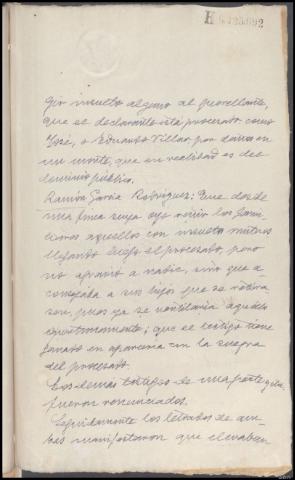 girio insulto alguno al querellante,
que el declarante está procesado como
José, o Eduardo Villar por daños en
un monte, que en realidad es del
dominio público.
Ramón García Rodríguez: Que desde
una finca suya oyó reñir las familias
aquellos con insultos mutuos
llegando luego el procesado, pero
no agravió a nadie, sino que a-
consejaba a sus hijos que se retira
sen, pues ya se ventilaría aquello
oportunamente; que el testigo tiene
ganado en aparcería con la suegra
del procesado.
Los demás testigos de una parte y otra
fueron renunciados.
Seguidamente los letrados de am-
bas manifestaron que elevaban